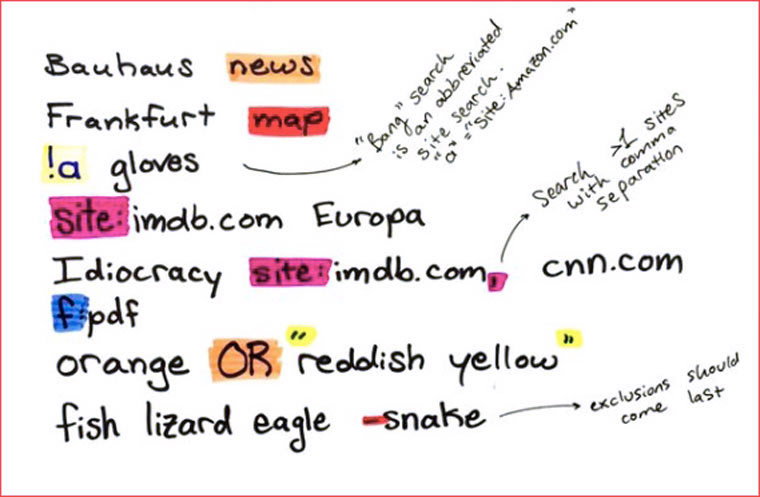 Bauhaus news
Frankfurt map
!a gloves
"Bang" search
is an abbreviated
site search.
"a" = "site:Amazon.com"
site:imdb.com Europa
Search >1 sites
with comma
separation
Idiocracy site:imdb.com, cnn.com
f:pdf
orange OR "reddish yellow"
fish lizard eagle -snake
exclusions should
come last